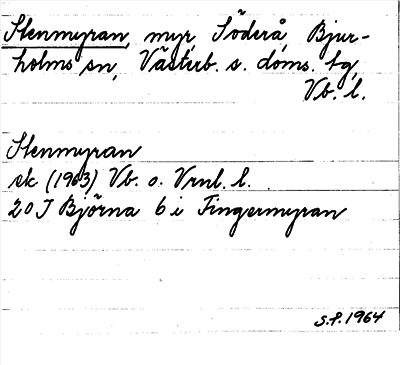 Stenmyran, myr, Söderå, Bjur-
holms sn, Västerb. s. doms. tg,
Vb. l.
Stenmyran
ek (1963) Vb. o. Vrnl. l.
20 J Björna 6 i Fingermyran
S.F. 1964